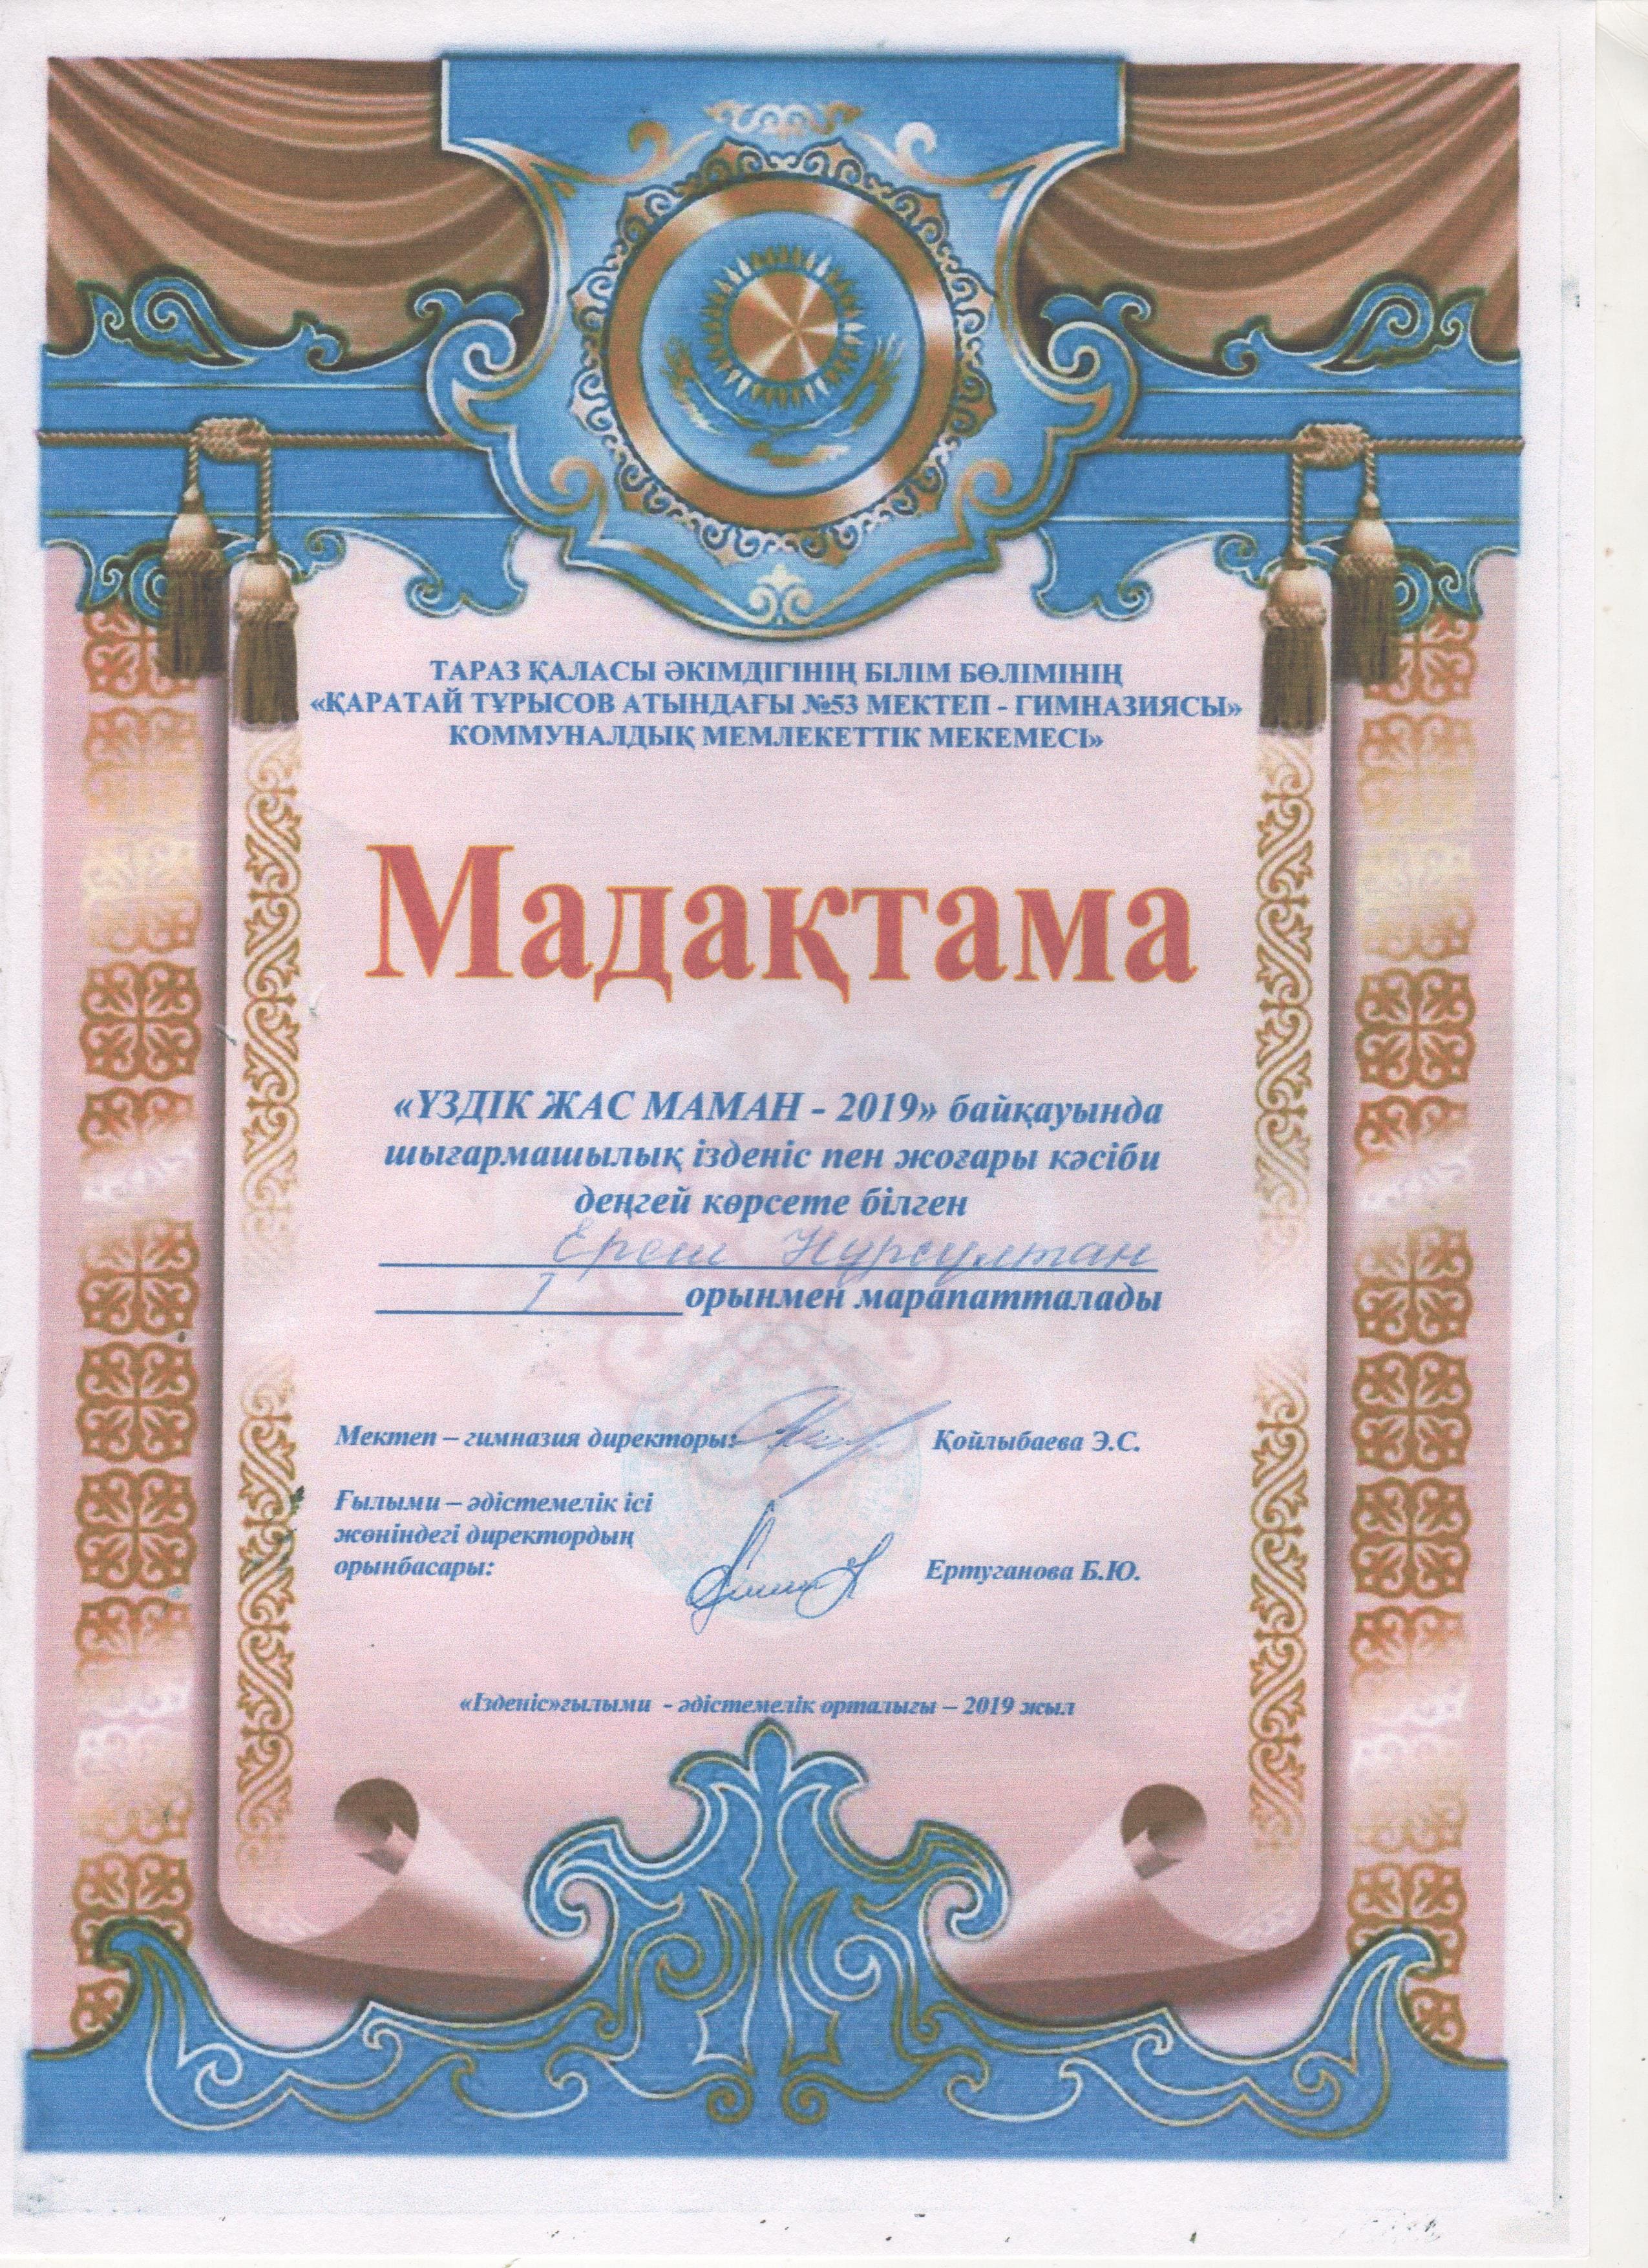 ТАРАЗ ҚАЛАСЫ ӘКІМДІГІНІҢ БІЛІМ БӨЛІМІНІҢ
«ҚАРАТАЙ ТҰРЫСОВ АТЫНДАҒЫ №53 МЕКТЕП - ГИМНАЗИЯСЫ»
КОММУНАЛДЫҚ МЕМЛЕКЕТТІК МЕКЕМЕСІ»
Мадақтама
«ҮЗДІК ЖАС МАМАН - 2019» байқауында
шығармашылық ізденіс пен жоғары кәсіби
деңгей көрсете білген
Ереш Нұрсұлтан
I орынмен марапатталады
Мектеп – гимназия директоры: Қойлыбаева Э.С.
Ғылыми – әдістемелік ісі
жөніндегі директордың
орынбасары: Ертуганова Б.Ю.
«Ізденіс»ғылыми - әдістемелік орталығы – 2019 жыл